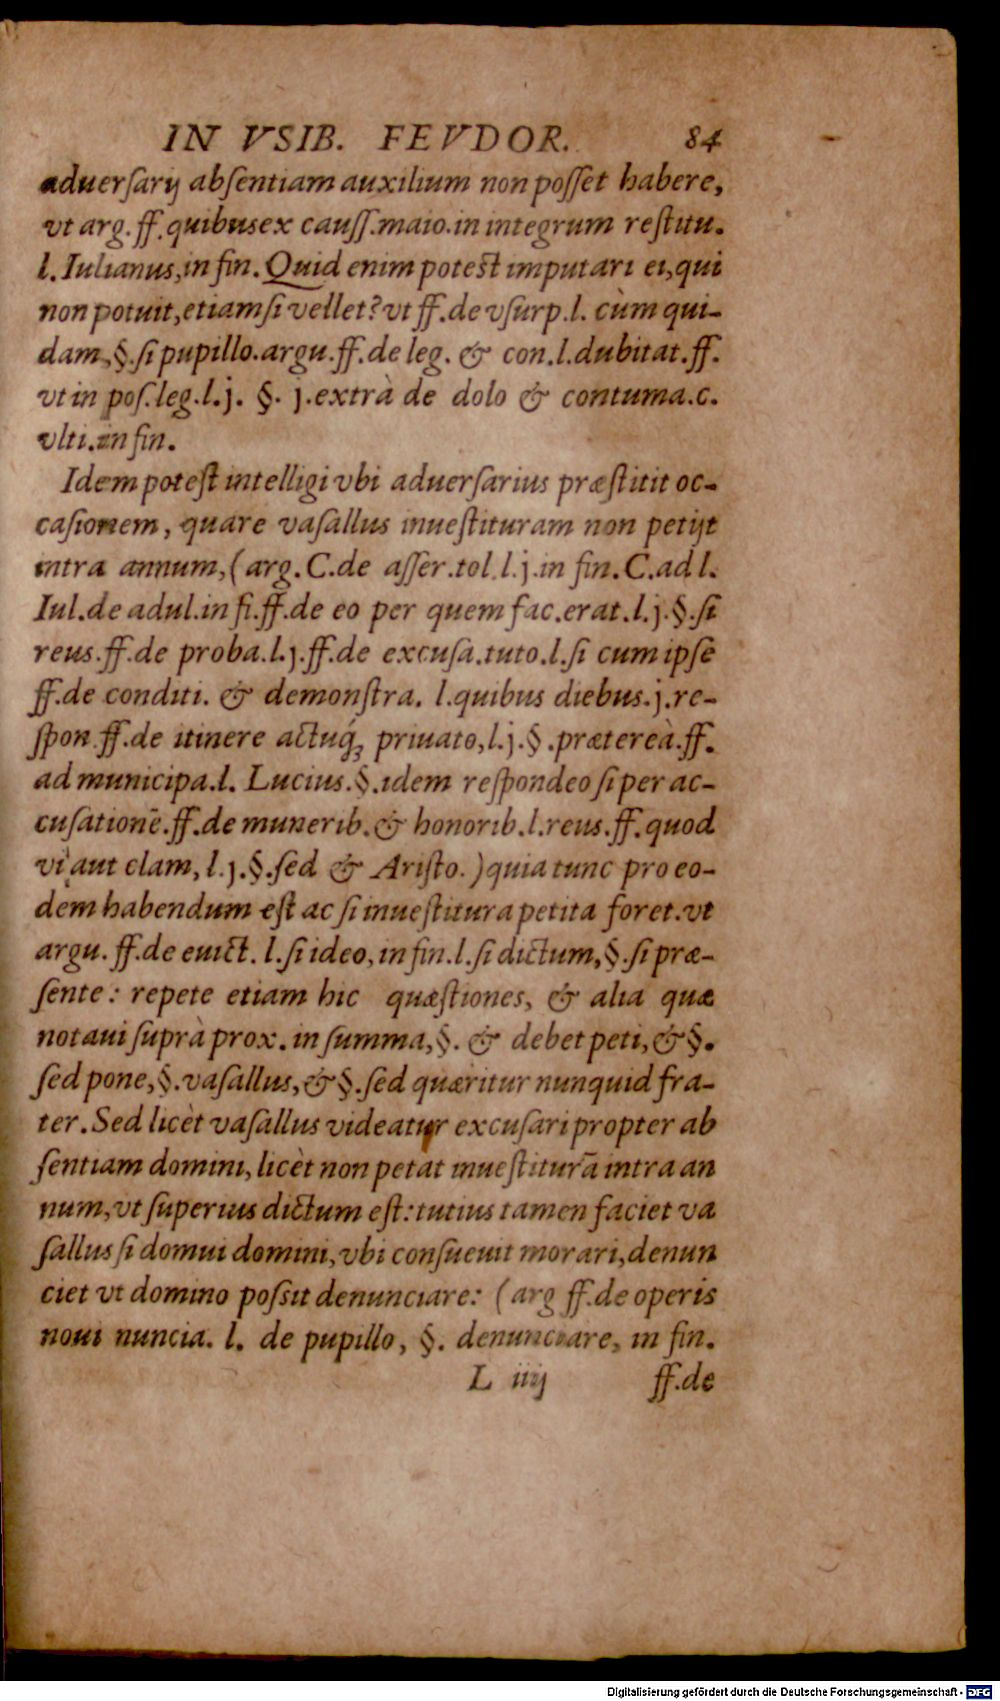 IN VSIB. FEVDOR. 84
aduersarij absentiam auxilium non posset habere,
vt arg. ff. quibus ex causs. maio. in integrum restitu.
l. Iulianus, in fin. Quid enim potest imputari ei, qui
non potuit, etiam si vellet? vt ff. de vsurp. l. cùm qui-
dam, §. si pupillo. argu. ff. de leg. & con. l. dubitat. ff.
vt in pos. leg. l. j. §. j. extrà de dolo & contuma. c.
vlti. in fin.
Idem potest intelligi vbi aduersarius præstitit oc-
casionem, quare vasallus inuestituram non petijt
intra annum, (arg. C. de asser. tol. l. j. in fin. C. ad l.
Iul. de adul. in fi. ff. de eo per quem fac. erat. l. j. §. si
reus. ff. de proba. l. j. ff. de excusa. tuto. l. si cum ipse
ff. de conditi. & demonstra. l. quibus diebus. j. re-
spon. ff. de itinere actuq́ꝫ priuato, l. j. §. prætereà. ff.
ad municipa. l. Lucius. §. idem respondeo si per ac-
cusationē. ff. de munerib. & honorib. l. reus. ff. quod
vi aut clam, l. j. §. sed & Aristo.) quia tunc pro eo-
dem habendum est ac si inuestitura petita foret. vt
argu. ff. de euict. l. si ideo, in fin. l. si dictum, §. si præ-
sente: repete etiam hic quæstiones, & alia quæ
notaui suprà prox. in summa, §. & debet peti, & §.
sed pone, §. vasallus, & §. sed quæritur nunquid fra-
ter. Sed licèt vasallus videatur excusari propter ab
sentiam domini, licèt non petat inuestiturā intra an
num, vt superius dictum est: tutius tamen faciet va
sallus si domui domini, vbi consueuit morari, denun
ciet vt domino possit denunciare: (arg ff. de operis
noui nuncia. l. de pupillo, §. denunciare, in fin.
L iiij ff. de
Digitalisierung gefördert durch die Deutsche Forschungsgemeinschaft - DFG